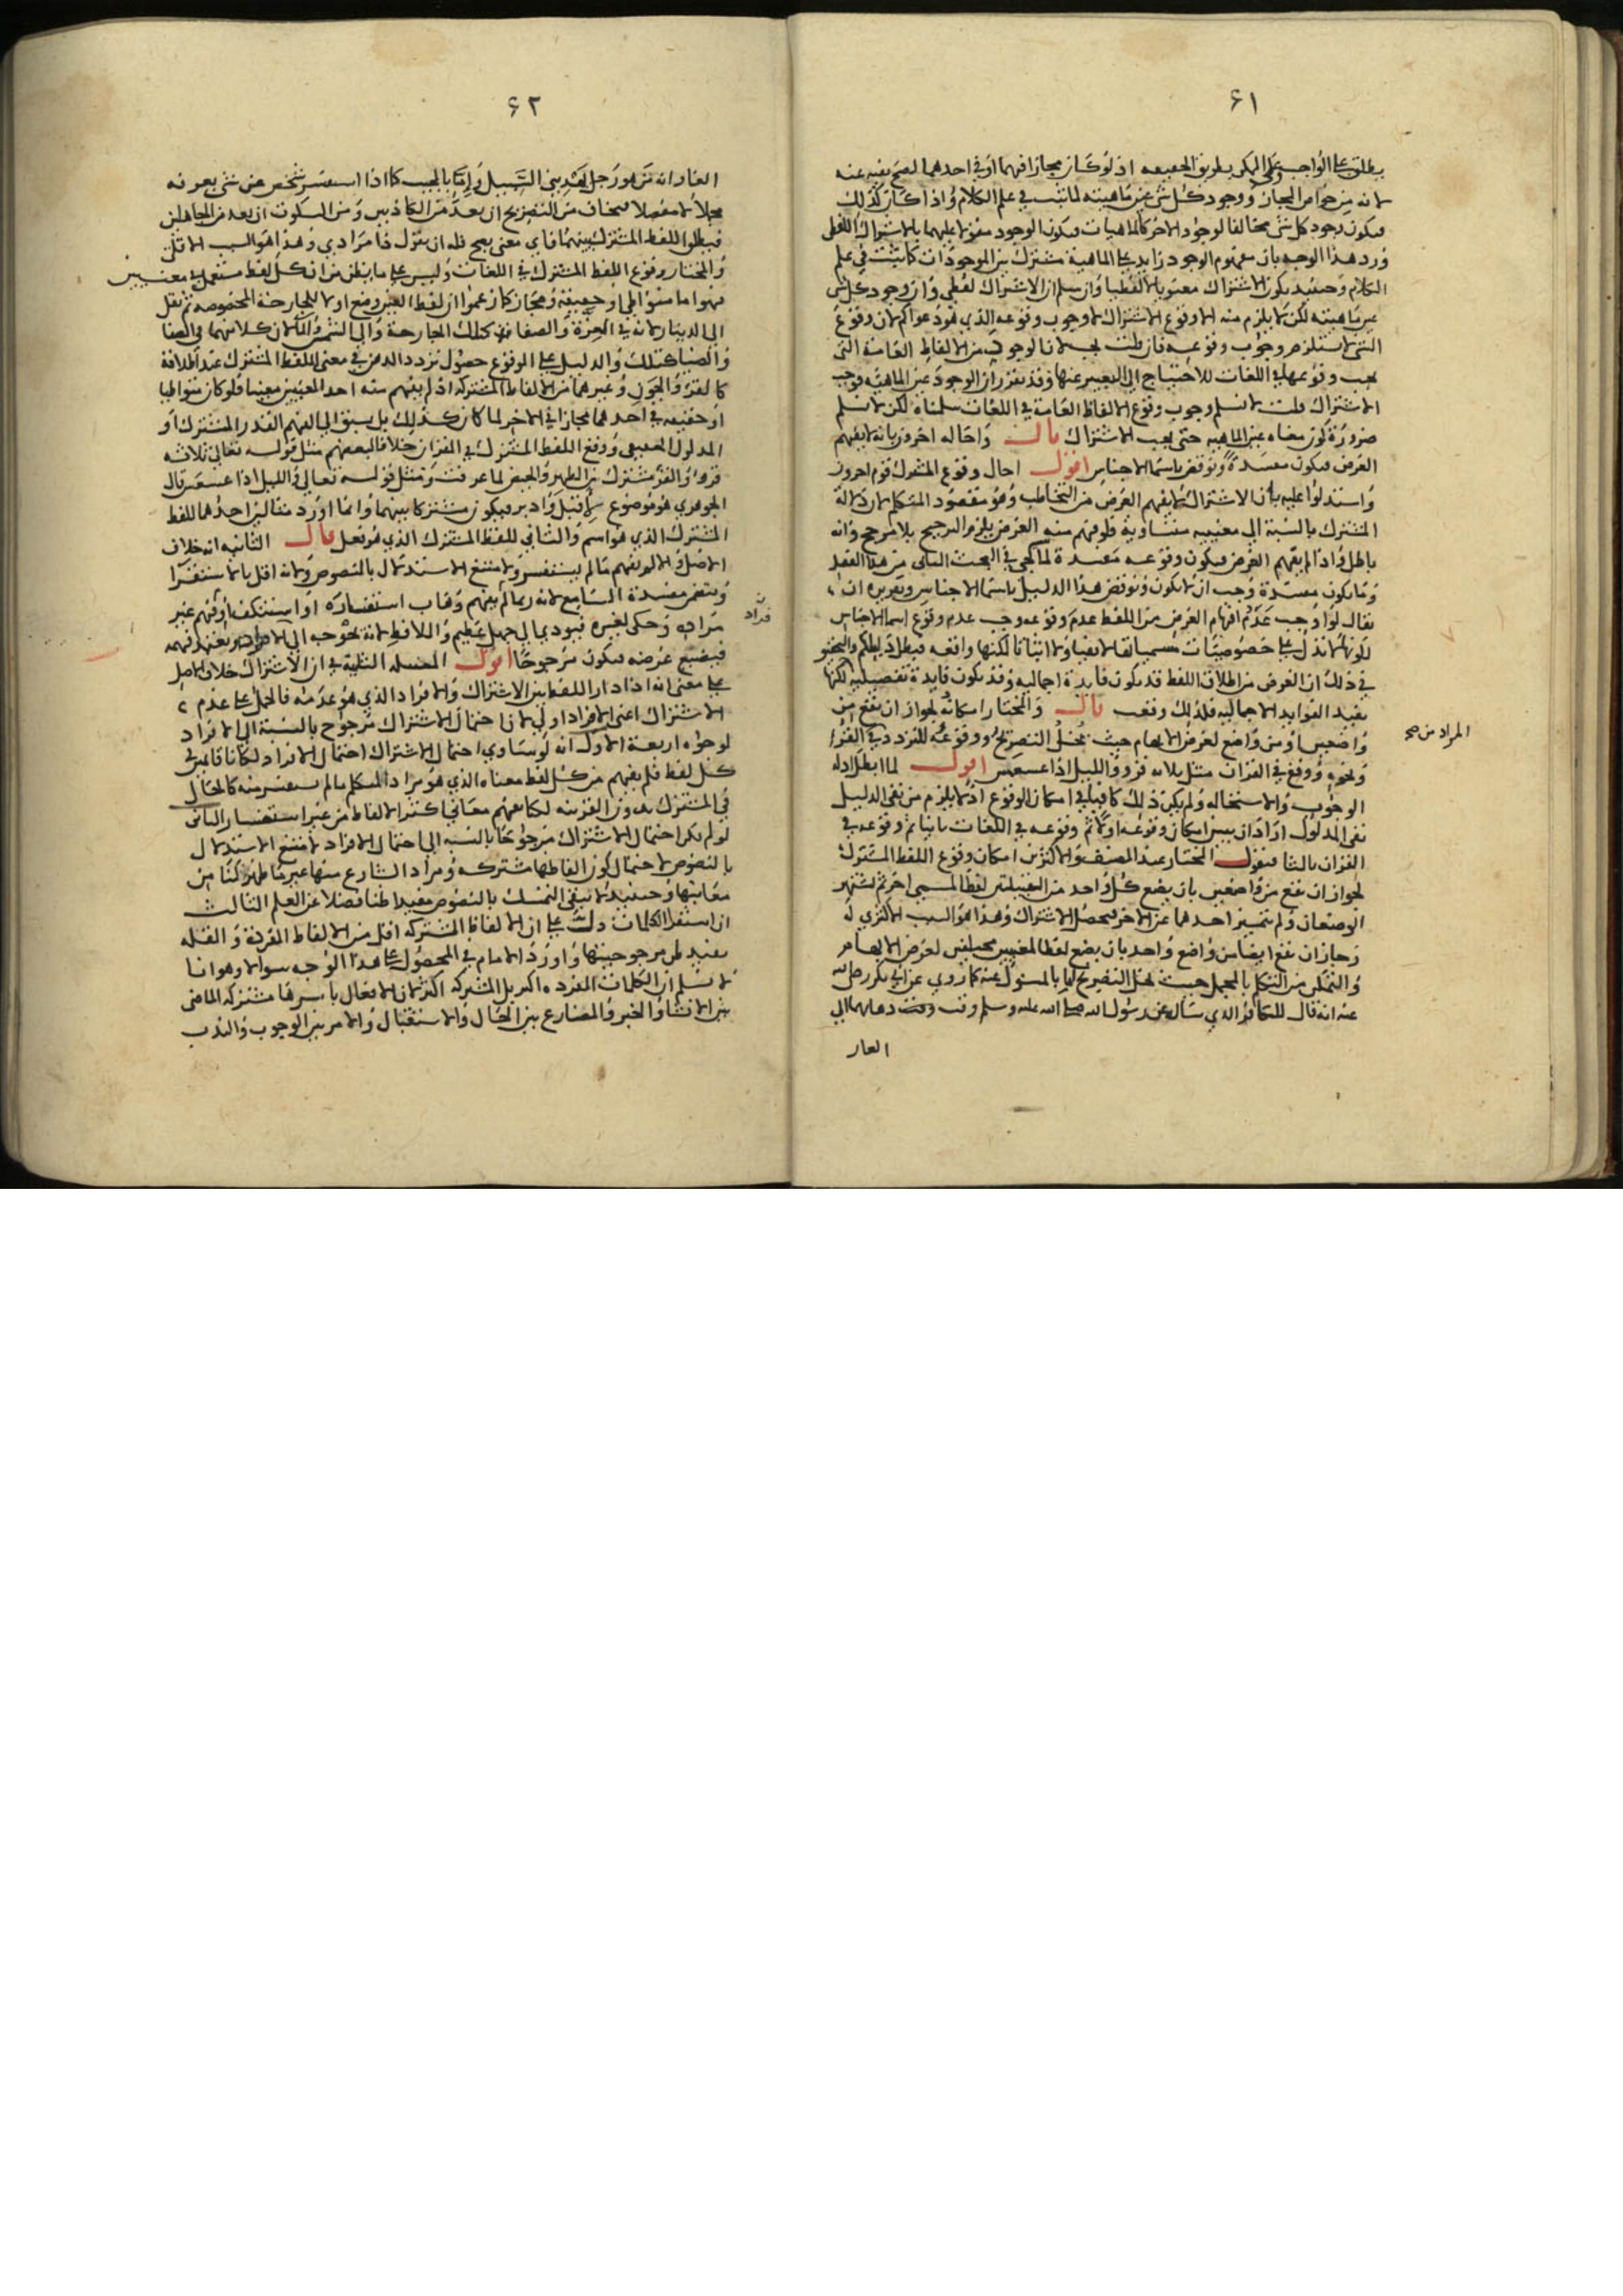 ٦١
يطلق على الواجب وعلى الممكن بطريق الحقيقة اذ لو كان مجازا فيهما او في احدهما لصح نفيه عنه
لانه من خواص المجاز ووجود كل شي عين ماهيته لما ثبت في علم الكلام واذا كان كذلك
فيكون وجود كل شي مخالفا لوجود الاخر كالماهيات فيكون الوجود مقولا عليهما بالاشتراك اللفظي
ورد هذا الوجه بان مفهوم الوجود زايد على الماهية مشترك بين الموجودات كما يثبت في علم
الكلام وحينيذ يكون الاشتراك معنويا لا لفظيا وان سلم ان الاشتراك لفظي وان وجود كل شي
عين ماهيته لكن لا يلزم منه الا وقوع الاشتراك لا وجوب وقوعه الذي هو دعواكم لان وقوع
الشي لا يستلزم وجوب وقوعه فان قلت يجب لان الوجود من الالفاظ العامة التي
يجب وقوعها في اللغات للاحتياج الى التعبير عنها وقد تقرر ان الوجود عين الماهية فوجب
الاشتراك قلت لا نسلم وجوب وقوع الالفاظ العامة في اللغات سلمناه لكن لا نسلم
ضرورة كون معناه عين الماهية حتى يجب الاشتراك قال واحاله اخرون بانه لا يفهم
الغرض فيكون مفسدة ونوقض باسما الاجناس اقول احال وقوع المشترك قوم اخرون
واستدلوا عليه بان الاشتراك لا يفهم الغرض من التخاطب وهو مقصود المتكلم لان دلالة
المشترك بالنسبة الى معنييه متساوية فلو فهم منه الغرض يلزم الترجيح بلا مرجح وانه
باطل واذا لم يفهم الغرض فيكون وقوعه مفسدة لما يجي في البحث الثاني من هذا الفصل
وما يكون مفسدة وجب ان لا يكون ونوقض هذا الدليل باسما الاجناس وتقريره ان
يقال لو اوجب عدم افهام الغرض من اللفظ عدم وقوعه وجب عدم وقوع اسما الاجناس
لكونها لا تدل على خصوصيات مسمياتها لا نفيا ولا اثباتا لكنها واقعة فبطل دليلكم والتحقيق
في ذلك ان الغرض من اطلاق اللفظ قد يكون فايدة اجمالية وقد يكون فايدة تفصيلية لكنها
يفيد الفوايد الاجمالية فلذلك وقعت قال والمختار امكانه لجواز ان يقع من
واضعين او من واضع لغرض الابهام حيث يخل التصريح ووقوعه للتردد في القرء
ونحوه ووقع في القران مثل ثلاثة قروء والليل اذا عسعس اقول لما ابطل ادلة
الوجوب والاستحالة ولم يكن ذلك كافيا في امكان الوقوع اذ لا يلزم من نفي الدليل
نفي المدلول اراد ان يبين امكان وقوعه اولا ثم وقوعه في اللغات ثانيا ثم وقوعه في
القران ثالثا فنقول المختار عند المصنف والاكثرين امكان وقوع اللفظ المشترك
لجواز ان يقع من واضعين بان يضع كل واحد من القبيلتين لفظا لمسمى اخر ثم يشتهر
الوضعان ولم يتميز احدهما عن الاخر فيحصل الاشتراك وهذا هو السبب الاكثري له
وجاز ان يقع ايضا من واضع واحد بان يضع لفظا لمعنيين مختلفين لغرض الابهام
والتمكن من التكلم بالمجمل حيث يخل التصريح اما بالمسئول عنه كما روي عن ابي بكر رضي الله
عنه انه قال للكافر الذي ساله عن رسول الله صلى الله عليه وسلم وقت ذهابهما الى
الغار
المراد من صح
٦٢
الغار انه من هو رجل يهديني السبيل واما بالمجيب كما اذا استفسر شخص عن شي يعرفه
مجملا لا مفصلا فيخاف من التصريح ان يعد من الكاذبين ومن السكوت ان يعد من الجاهلين
فيطلق اللفظ المشترك بينهما فاي معنى يصح فله ان يقول ذا مرادي وهذا هو السبب الاقلي
والمختار وقوع اللفظ المشترك في اللغات وليس على ما يظن من ان كل لفظ مستعمل في معنيين
فهو اما متواطي او حقيقة ومجاز كما زعموا ان لفظ العين وضع اولا للجارحة المخصوصة ثم نقل
الى الدينار لانه في العزة والصفا كتلك الجارحة والى الشمس والماء لان كلا منهما في الصفا
والضيا كتلك والدليل على الوقوع حصول تردد الذهن في معنى اللفظ المشترك عند اطلاقه
كالقرء والجون وغيرهما من الالفاظ المشتركة اذ لم يفهم منه احد المعنيين معينا فلو كان متواطيا
او حقيقة في احدهما مجازا في الاخر لما كان كذلك بل يسبق الى الفهم القدر المشترك او
المدلول الحقيقي ووقع اللفظ المشترك في القران خلافا لبعضهم مثل قوله تعالى ثلاثة
قروء والقرء مشترك بين الطهر والحيض لما عرفت ومثل قوله تعالى والليل اذا عسعس قال
الجوهري هو موضوع لاقبل وادبر فيكون مشتركا بينهما وانما اورد مثالين احدهما للفظ
المشترك الذي هو اسم والثاني للفظ المشترك الذي هو فعل قال الثانية انه خلاف
الاصل والا لم يفهم ما لم يستفسر ولا امتنع الاستدلال بالنصوص ولانه اقل بالاستقرا
ويتضمن مفسدة السامع لانه ربما لم يفهم وهاب استفساره او استنكف او فهم غير
مراده وحكى لغيره فيودي الى جهل عظيم واللافظ لانه يحوجه الى
فيضيع غرضه فيكون مرجوحا اقول المسئلة الثانية في ان الاشتراك خلاف الاصل
على معنى انه اذا دار اللفظ بين الاشتراك والافراد الذي هو عدمه فالحمل على عدم
الاشتراك اعني الافراد اولى لان احتمال الاشتراك مرجوح بالنسبة الى الافراد
لوجوه اربعة الاول انه لو ساوى احتمال الاشتراك احتمال الافراد لكانا قايمين في
كل لفظ فلم يفهم من كل لفظ معناه الذي هو مراد المتكلم ما لم يستفسر منه كالحال
في المشترك بدون القرينة لكنا نفهم معاني اكثر الالفاظ من غير استفسار الثاني
لو لم يكن احتمال الاشتراك مرجوحا بالنسبة الى احتمال الافراد لامتنع الاستدلال
بالنصوص لاحتمال كون الفاظها مشتركة ومراد الشارع منها غير ما ظهر لنا من
معانيها وحينيذ لا يبقى التمسك بالنصوص مفيدا ظنا فضلا عن العلم الثالث
ان استقرا الكلمات دلت على ان الالفاظ المشتركة اقل من الالفاظ المفردة والقلة
يفيد ظن مرجوحيتها واورد الامام في المحصول على هذا الوجه سوالا وهو انا
لا نسلم ان الكلمات المفردة اكثر بل المشتركة اكثر لان الافعال باسرها مشتركة الماضي
بين الانشا والخبر والمضارع بين الحال والاستقبال والامر بين الوجوب والندب